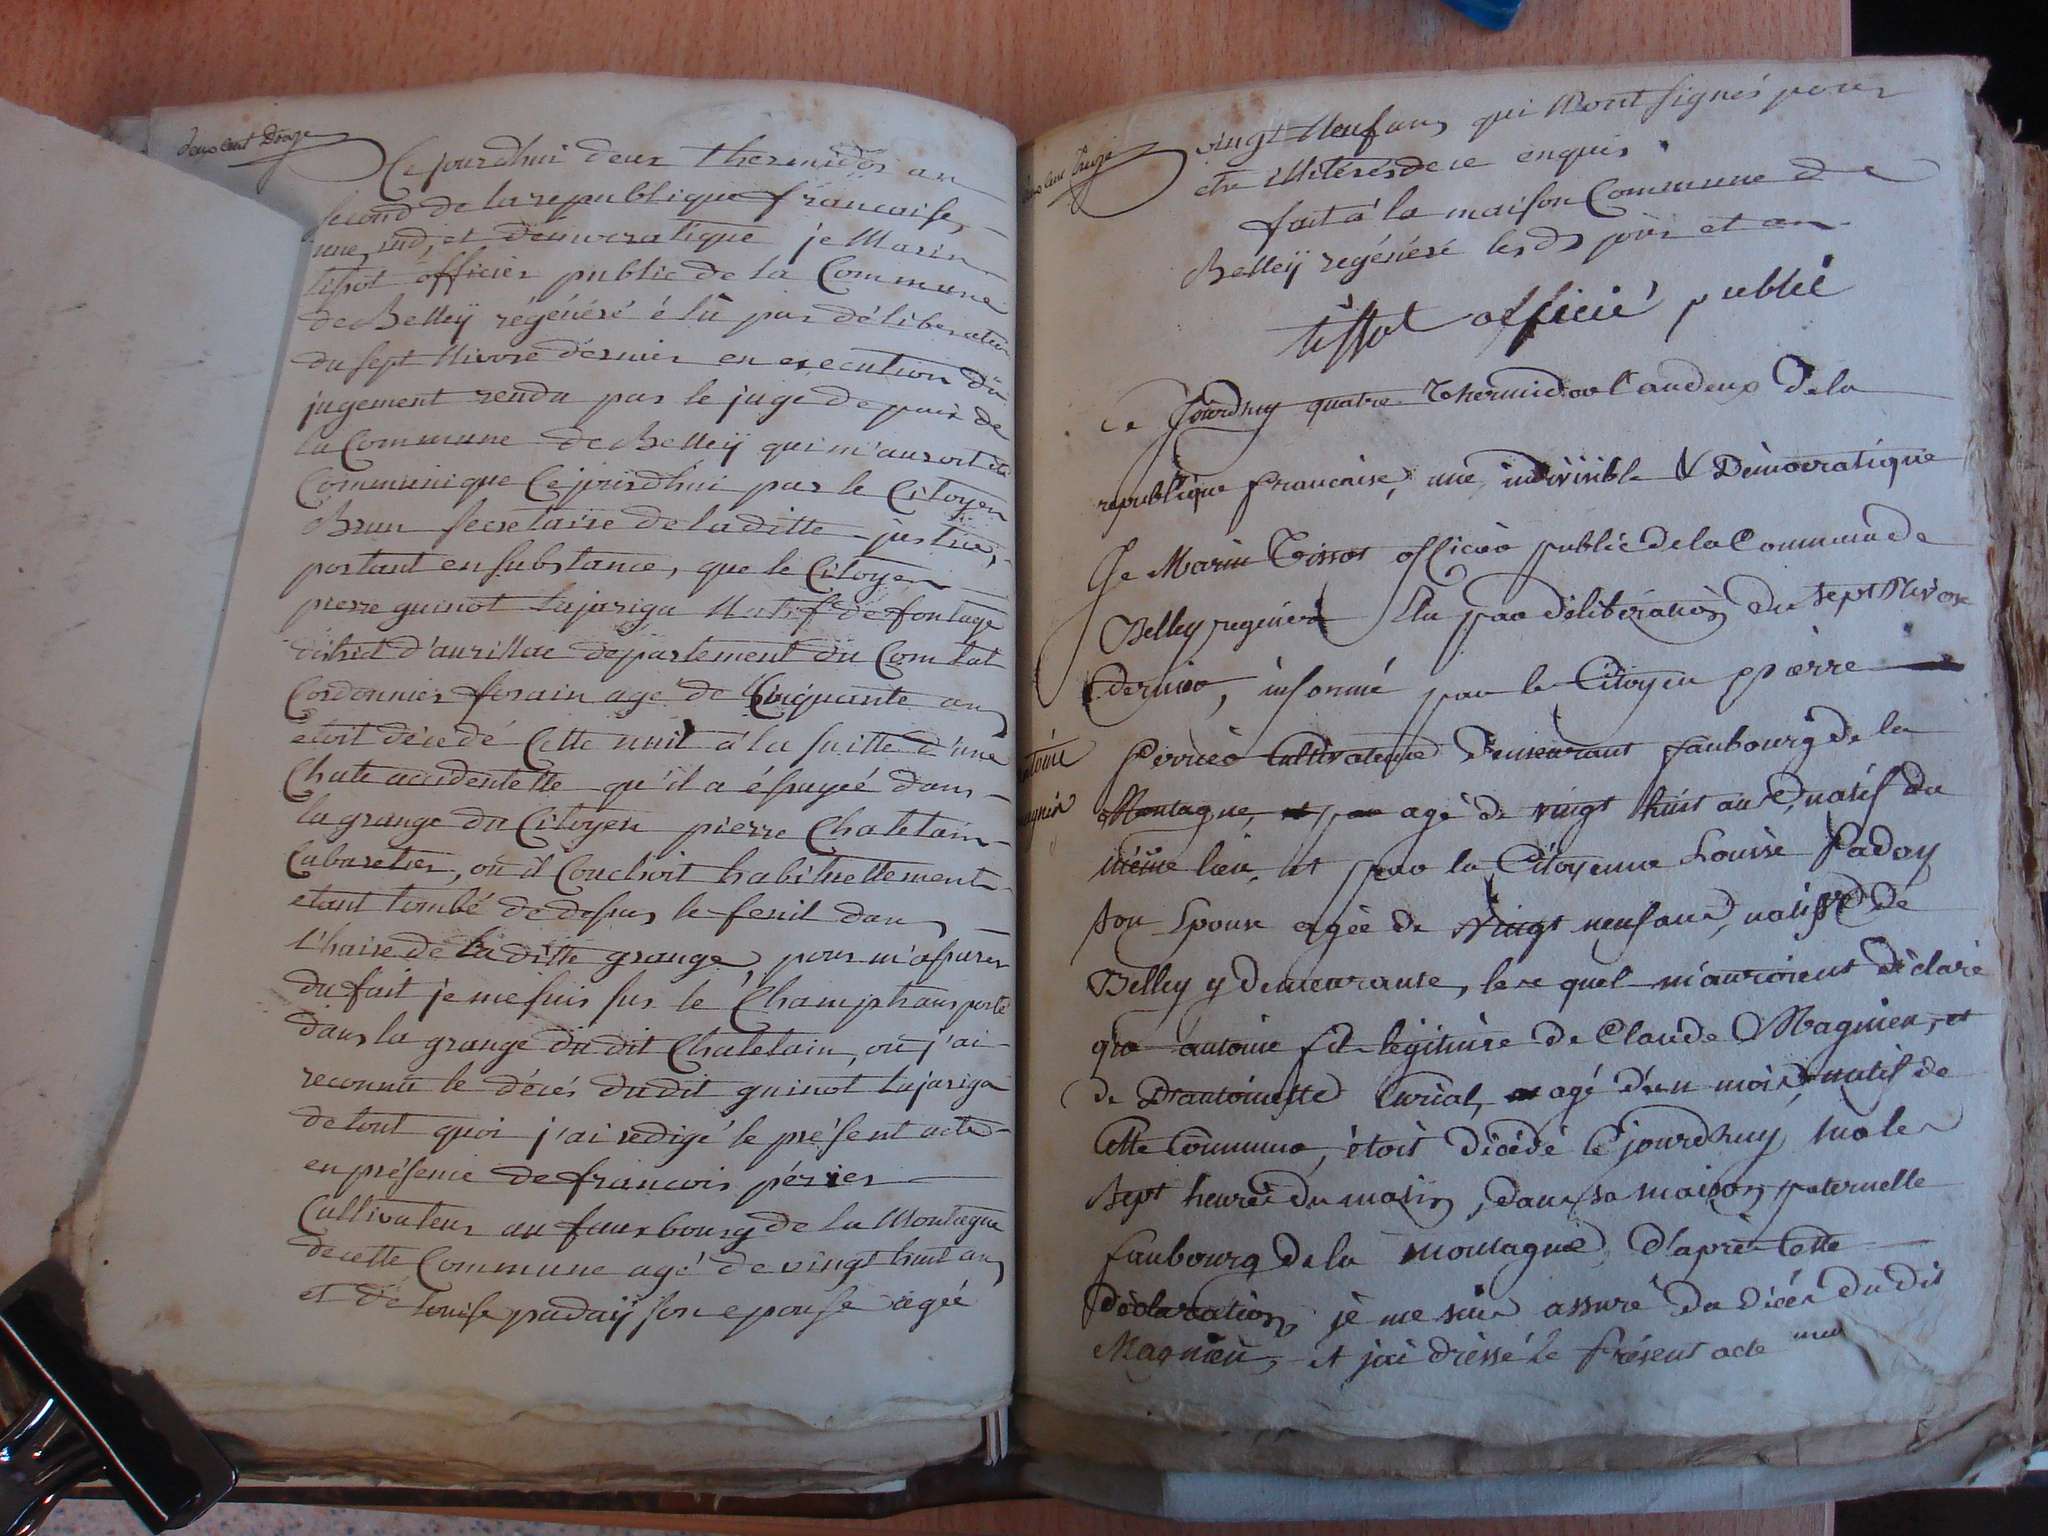 deux cent Douze
Ce jourdhui deux thermidor an
second de la republique francaise,
une, ind, et democratique je Marin
tissot officier public de la Commune
de Belleÿ régénéré élu par déliberation
du sept Nivose dernier en execution du
jugement rendu par le juge de paix de
la Commune de Belleÿ qui m'auroit été
Communique Cejourdhui par le Citoyen
Brun secretaire de la ditte justice,
portant en substance, que le Citoyen
pierre guinot lajariga Natif de fontage
district d'aurillac département du Comtat
Cordonnier forain agé de Cinquante ans
étoit décedé Cette nuit à la suitte d'une
Chute accidentelle qu'il a éssuyée dans
la grange du Citoyen pierre Chatelain
Cabaretier, ou il Couchoit habituellement
etant tombé de dessus le fenil dans
l'haire de la ditte grange, pour m'assurer
du fait je me suis sur le Champ transporté
dans la grange du dit Chatelain, ou j'ai
reconnu le décés du dit guinot lajariga
de tout quoi j'ai redigé le présent acte
en présence de francois périer
Cultivateur au fauxbourg de la Montagne
de cette Commune agé de vingt huit ans
et de Louise padaÿ son epouse agée
deux cent treize
vingt Neuf ans, qui n'ont signés pour
etre illiterés de ce enquis.
fait à la maison Commune de
Belleÿ régénéré lesds jour et an
tissot officié publié
Ce Jourdhuy quatre Thermidor l'an deux de la
republique francaise, une, indivisible & Démocratique
Je Marin Tissot officier public de la Commune de
Belley regénéré Elu par délibération du sept Nivose
Dernier, informé par le Citoyen pierre
Perrier Cultivateur Demeurant faubourg de la
Montagne, agé de vingt huit ans, natif du
même lieu, et par la Citoyenne Louise Paday
son Epouse agée de vingt neuf ans, native de
Belley y demeurante, lesquel m'auroient déclaré
que antoine fils légitime de Claude Magnien, et
de D'antoinette Curial, agé d'un mois, natif de
Cette Commune, étoit décédé Cejourdhuy, sur les
Sept heures du matin, dans sa maison paternelle
faubourg de la Montagne, D'après Cette
Déclaration, je me suis assuré du décés du dit
Magnien, et j'ai dressé le présent acte
antoine
magnien